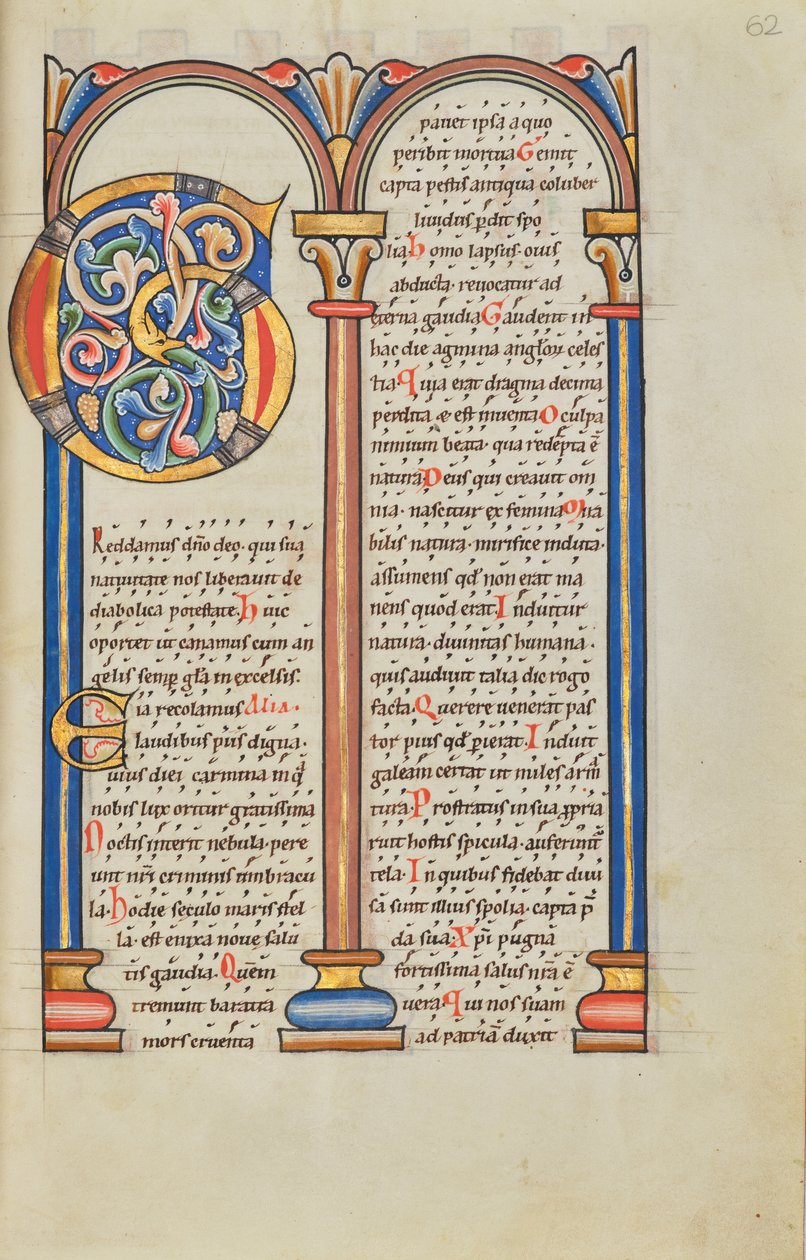 62
G
Reddamus dño deo· qui sua
natiuitate nos liberauit de
diabolica potestate· huic
oportet ut canamus cum an
gelis semp gła in excelsis·
Eia recolamus Alia·
laudibus piis digna·
uius diei carmina in q̄
nobis lux oritur gratissima
Noctis interit nebula· pere
unt nr̄i criminis umbracu
la· hodie seculo maris stel
la· est enixa noue salu
tis gaudia· Quem
tremunt baratra
mors cruenta
pauet ipsa a quo
peribit mortua Gemit
capta pestis antiqua coluber
liuidus p̱dit spo
lia homo lapsus· ouis
abducta· reuocatur ad
eterna gaudia Gaudent in
hac die agmina angl̄oꝝ celes
tia· quia erat dragma decima
perdita & est inuenta O culpa
nimium beata· qua redēpta ē
natura Deus qui creauit om
nia· nascitur ex femina Mira
bilis natura· mirifice induta·
assumens qd̄ non erat ma
nens quod erat· Induitur
natura· diuinitas humana·
quis audiuit talia dic rogo
facta· Querere uenerat pas
tor pius qd̄ p̱ierat· Induit
galeam certat ut miles arm
tura· Prostratus in sua p̱pria
ruit hostis spicula· auferunt̄
tela· In quibus fidebat diui
sa sunt illius spolia· capta p̄
da sua Xp̄i pugna
fortissima salus nr̄a ē
uera· qui nos suam
ad patriā duxit